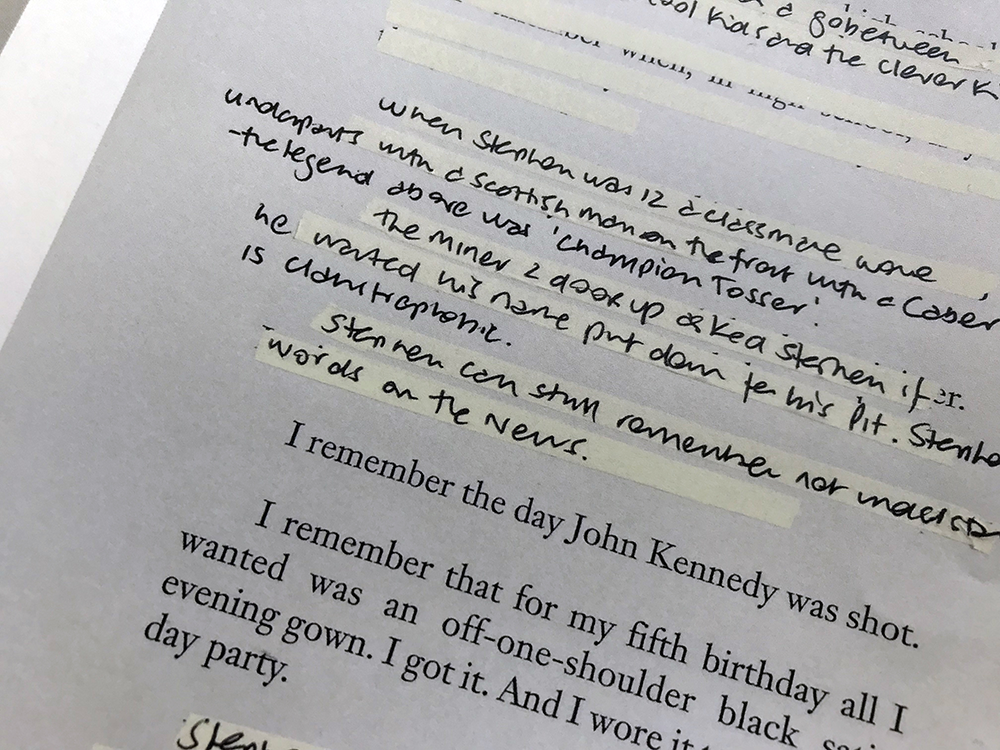 a gobetween
cool kids and the clever k
when, in high school,
when Stephen was 12 a classmate wore
underpants with a Scottish man on the front with a Caber,
-the legend above was 'Champion Tosser'.
the Miner 2 doors up asked Stephen if er.
he wanted his name put down for his Pit. Stephe
is claustrophobic.
Stephen can still remember not underst
words on the News.
I remember the day John Kennedy was shot.
I remember that for my fifth birthday all I
wanted was an off-one-shoulder black sati
evening gown. I got it. And I wore it
day party.
Step